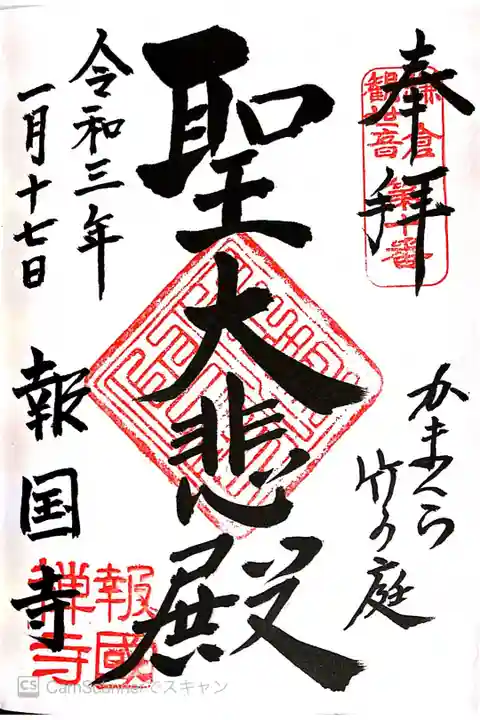 奉拝
鎌倉
観世音
第十番
かまくら
竹の庭
聖大悲殿
令和三年
一月十七日
報国寺
報國
禅寺
CS CamScannerでスキャン